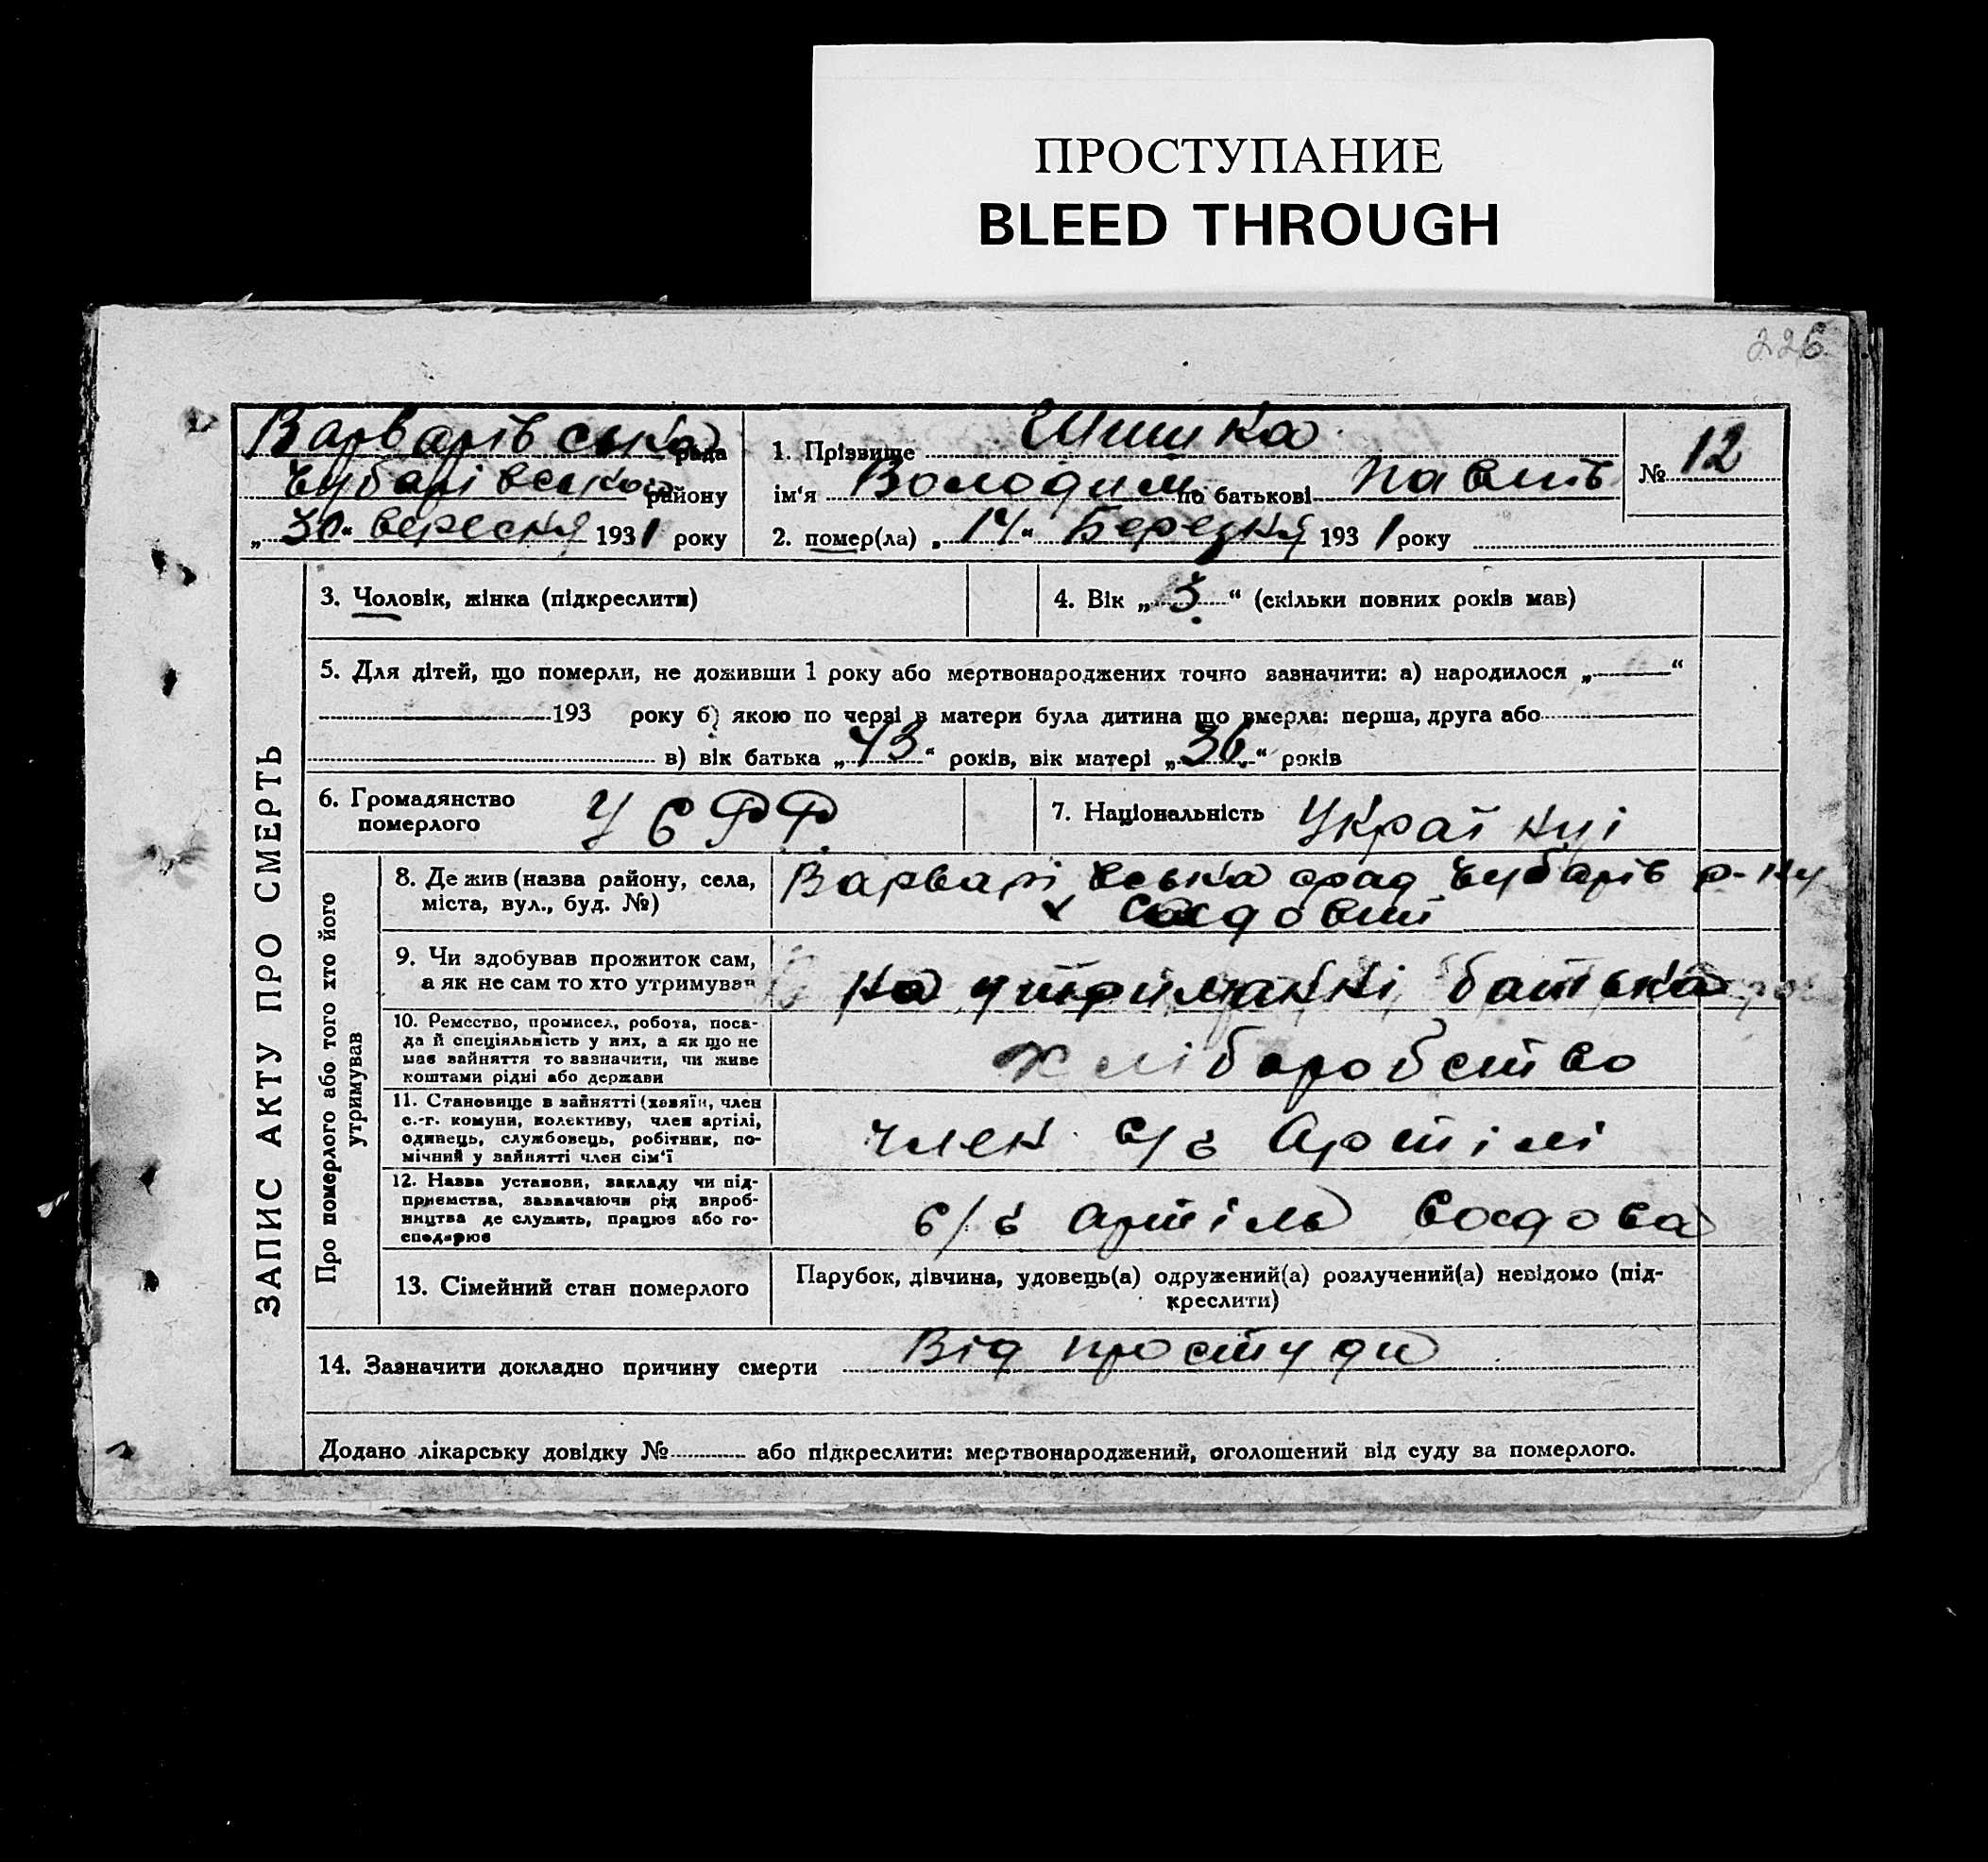 ПРОСТУПАНИЕ
BLEED THROUGH
226
Варварівська рада
Чубарівського району
„30“ вересня 1931 року
1. Прізвище Шишка
ім‘я Володим по батькові Павлит
№ 12
2. помер(ла) „14“ Березня 1931 року
ЗАПИС АКТУ ПРО СМЕРТЬ
3. Чоловік, жінка (підкреслити)
4. Вік „3“ (скільки повних років мав)
5. Для дітей, що померли, не доживши 1 року або мертвонароджених точно зазначити: а) народилося „ “
193 року б) якою по черзі в матери була дитина що вмерла: перша, друга або
в) вік батька „43“ років, вік матері „36“ років
6. Громадянство
померлого
УСРР
7. Національність Українці
Про померлого або того хто його
утримував
8. Де жив (назва району, села,
міста, вул., буд. №)
Варварівська срад Чубарів р-ну
9. Чи здобував прожиток сам,
а як не сам то хто утримував
на утриманні батька
10. Ремество, промисел, робота, поса-
да й спеціяльність у них, а як що не
має зайняття то зазначити, чи живе
коштами рідні або держави
хліборобство
11. Становище в зайнятті (хазяїн, член
с.-г. комуни, колективу, член артілі,
одинець, службовець, робітник, по-
мічний у зайнятті член сім‘ї
член с/г Артілі
12. Назва установи, закладу чи під-
приємства, зазначаючи рід вироб-
ництва де служить, працює або го-
сподарює
с/г артіль
13. Сімейний стан померлого
Парубок, дівчина, удовець(а) одружений(а) розлучений(а) невідомо (під-
креслити)
14. Зазначити докладно причину смерти Від простуди
Додано лікарську довідку № або підкреслити: мертвонароджений, оголошений від суду за померлого.